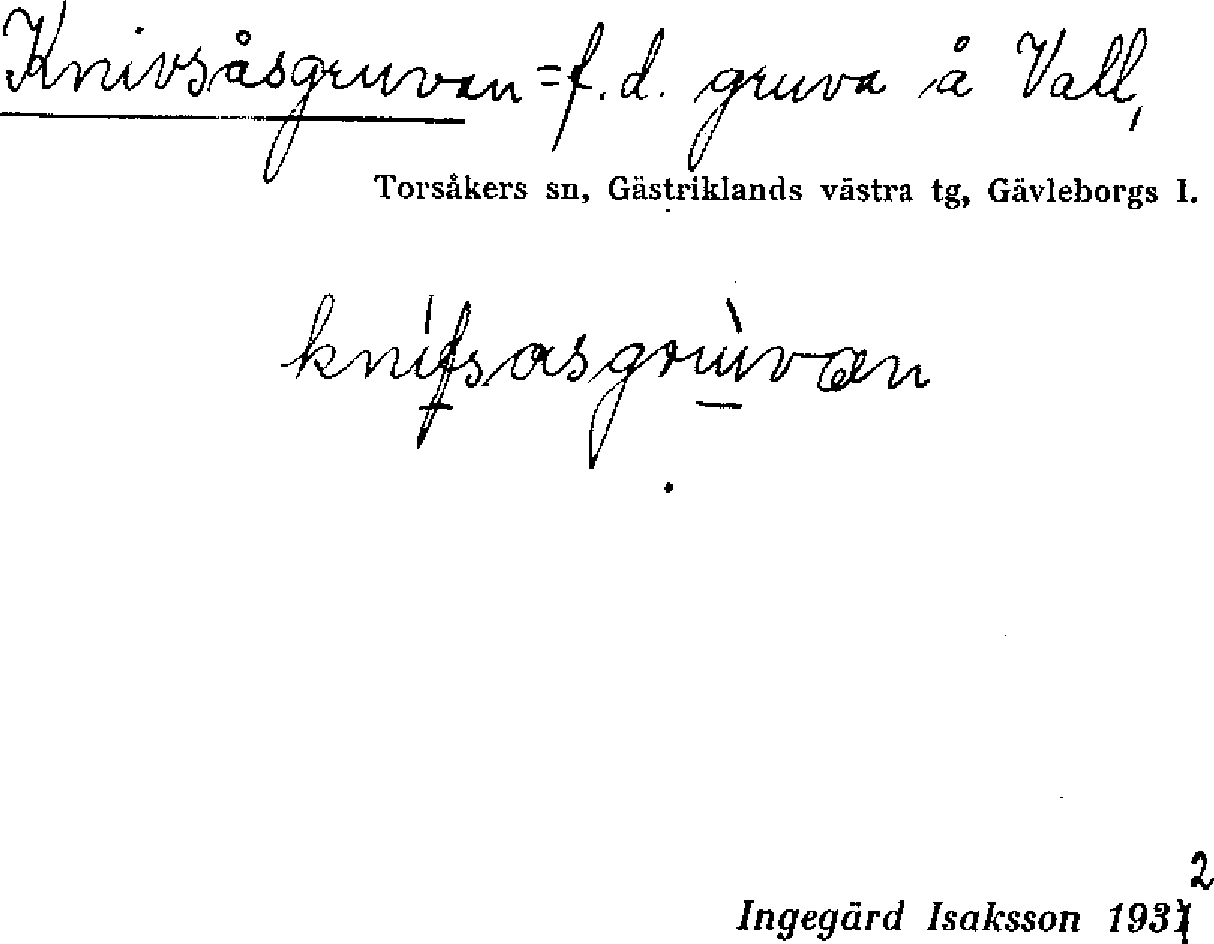 Knivsåsgruvan = f.d. gruva å Vall,
Torsåkers sn, Gästriklands västra tg, Gävleborgs l.
knifsasgruvan
2
Ingegärd Isaksson 1931